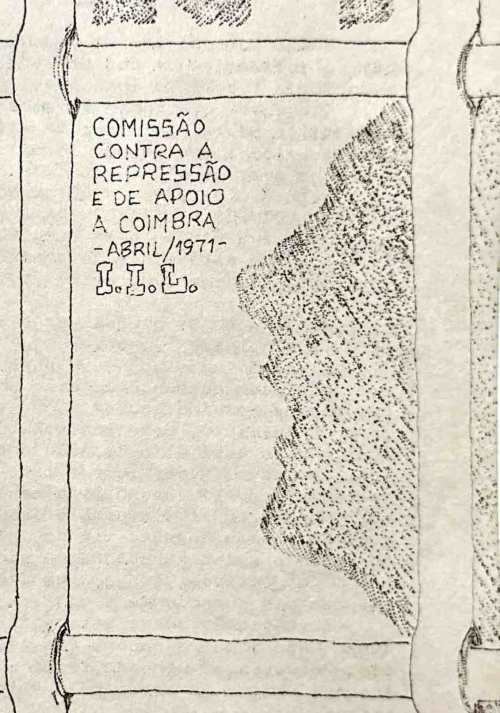 COMISSÃO
CONTRA A
REPRESSÃO
E DE APOIO
A COIMBRA
-ABRIL/1971-
I.I.L.